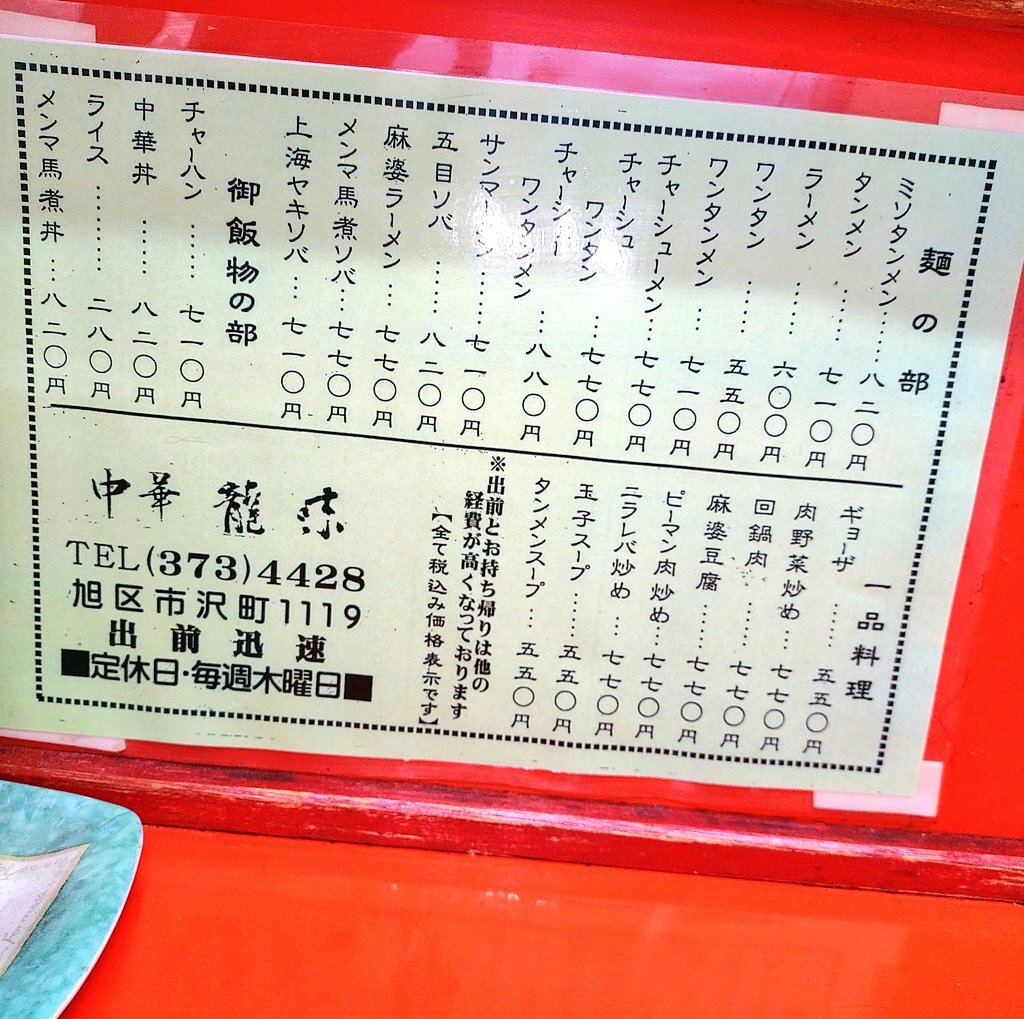 麺の部
ミソタンメン……八二〇円
タンメン……七一〇円
ラーメン……六〇〇円
ワンタン……五五〇円
ワンタンメン…七一〇円
チャーシューメン…七七〇円
チャーシュ
ワンタン…七七〇円
チャーシー
ワンタンメン…八八〇円
サンマーメン……七一〇円
五目ソバ……八二〇円
麻婆ラーメン…七七〇円
メンマ馬煮ソバ…七七〇円
上海ヤキソバ…七一〇円
御飯物の部
チャーハン……七一〇円
中華丼……八二〇円
ライス………二八〇円
メンマ馬煮丼…八二〇円
一品料理
ギョーザ……五五〇円
肉野菜炒め…七七〇円
回鍋肉……七七〇円
麻婆豆腐……七七〇円
ピーマン肉炒め…七七〇円
ニラレバ炒め…七七〇円
玉子スープ……五五〇円
タンメンスープ…五五〇円
※出前とお持ち帰りは他の
経費が高くなっております
【全て税込み価格表示です】
中華 龍
TEL(373)4428
旭区市沢町1119
出前迅速
■定休日・毎週木曜日■